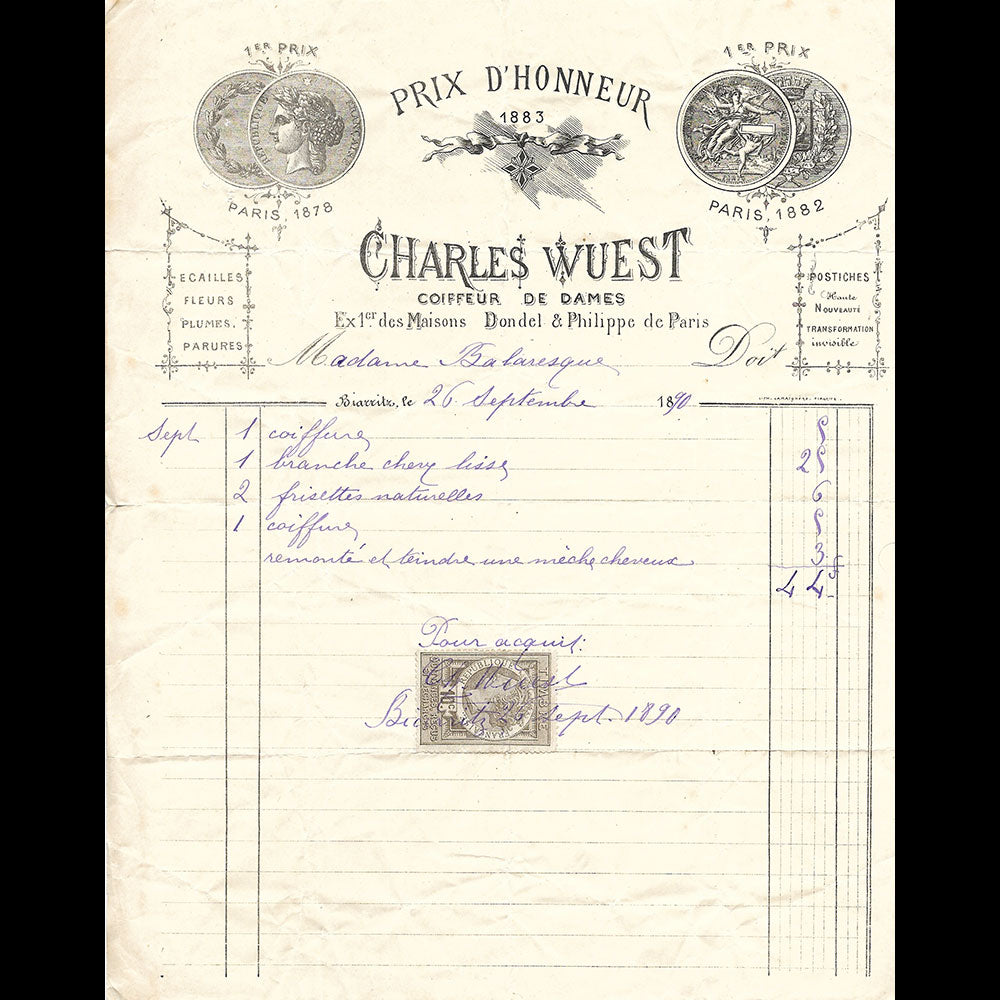 1ER PRIX
PRIX D'HONNEUR
1883
1ER PRIX
RÉPUBLIQUE FRANÇAISE
PARIS, 1878
PARIS, 1882
CHARLES WUEST
COIFFEUR DE DAMES
Ex 1er des Maisons Dondel & Philippe de Paris
ECAILLES
FLEURS
PLUMES.
PARURES
POSTICHES
Haute
NOUVEAUTÉ
TRANSFORMATION
invisible
Madame Balaresque Doit
Biarritz, le 26 Septembre 1890
Sept 1 coiffure 5
1 branche chevx lisse 25
2 frisettes naturelles 6
1 coiffure 5
remonté et teindre une mèche cheveux 3
44f
Pour acquit:
Ch Wuest
Biarritz 26 Sept. 1890
RÉPUBLIQUE
FRANÇAISE
10 C.